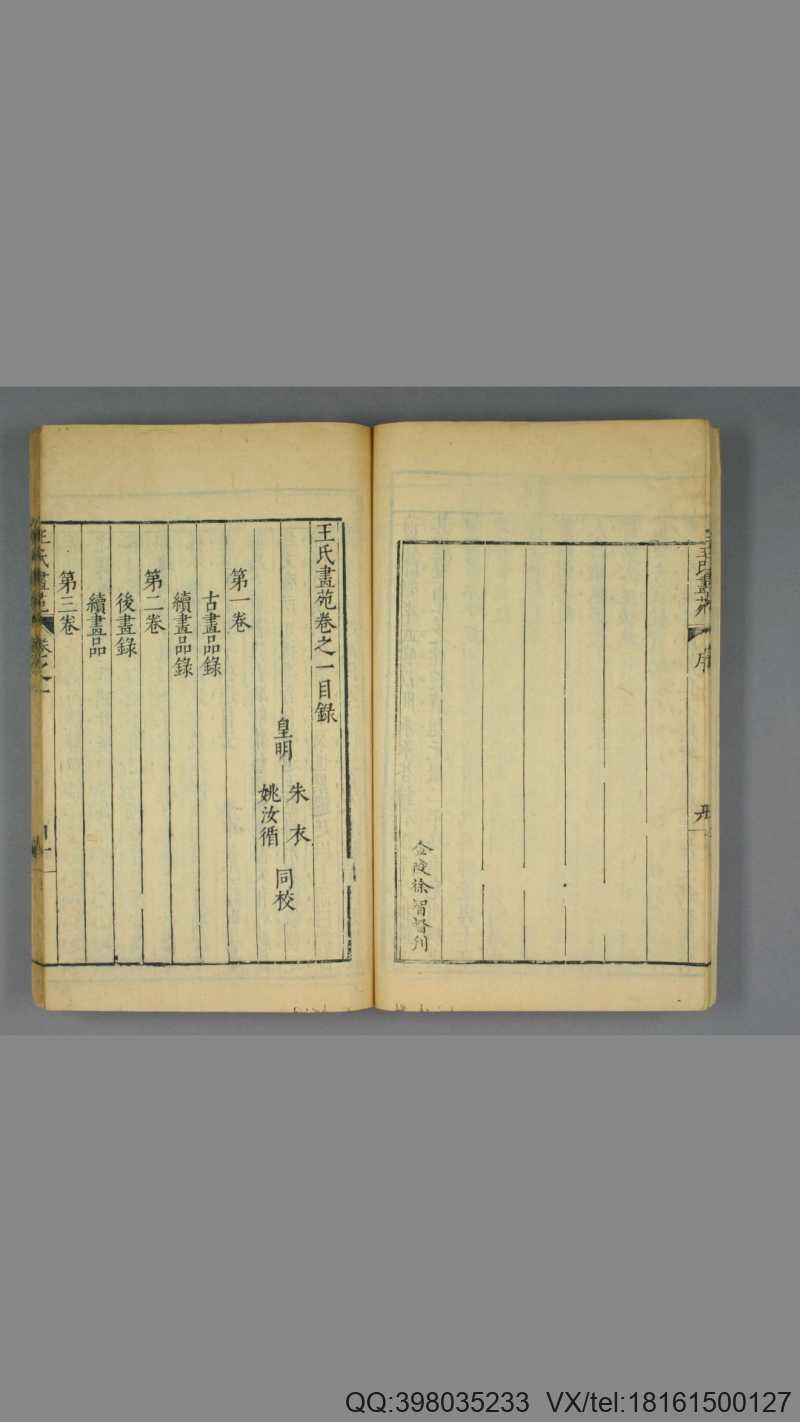 王氏畫苑
序
金陵徐智督刊
王氏畫苑卷之一目錄
皇明
朱衣
姚汝循
同校
第一卷
古畫品錄
續畫品錄
第二卷
後畫錄
續畫品
第三卷
王氏畫苑
卷之一
QQ:398035233 VX/tel:18161500127